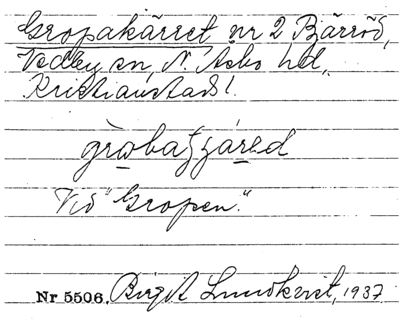 Gropakärret nr 2 Bjärröd,
Vedby sn N. Åsbo hd,
Kristianstads l.
Vid "Gropen".
Nr 5506. Birgit Lundkvist, 1937